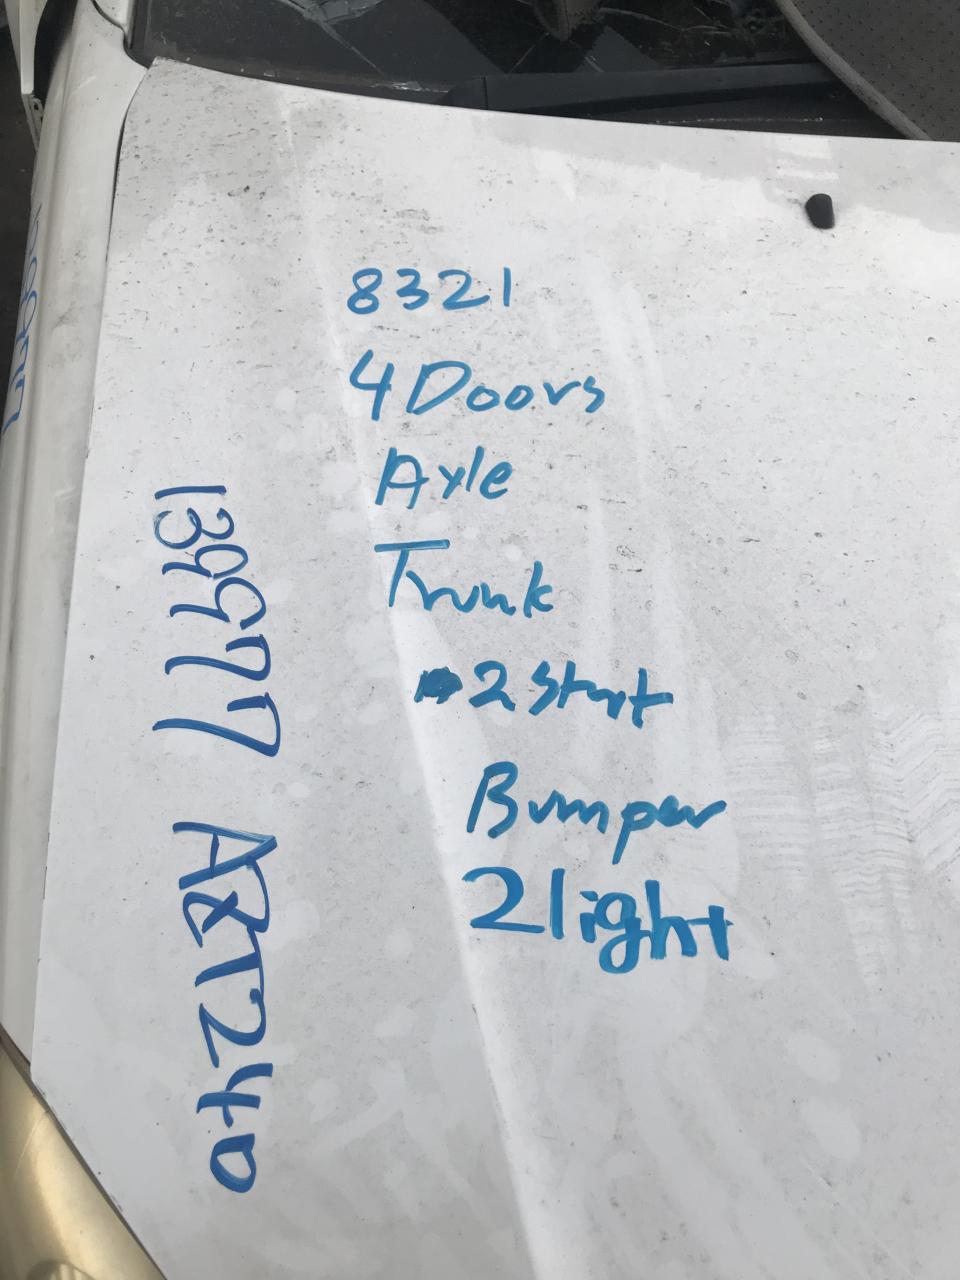 8321
4 Doors
Axle
Trunk
2 Strut
Bumper
2 light
139977 AZT240